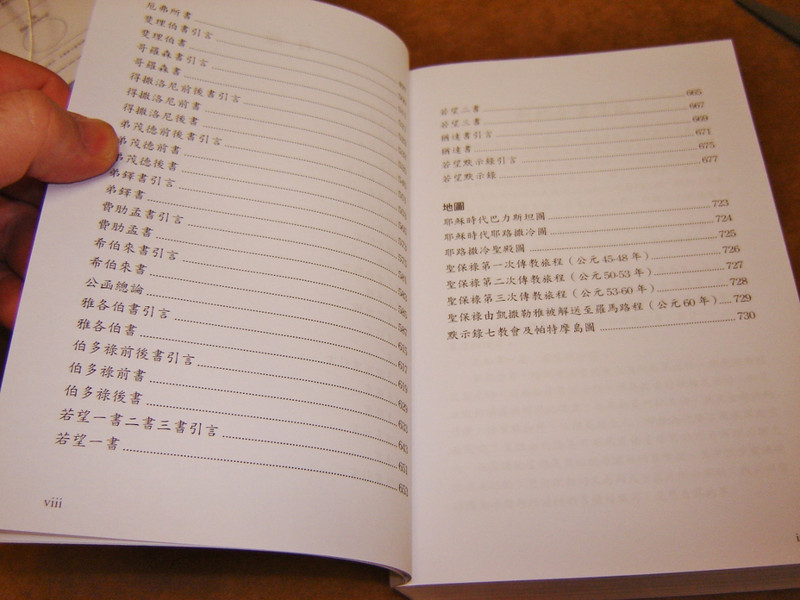 厄弗所書
斐理伯書引言
斐理伯書
哥羅森書引言
哥羅森書
得撒洛尼前後書引言
得撒洛尼前書
得撒洛尼後書
弟茂德前後書引言
弟茂德前書
弟茂德後書
弟鐸書引言
弟鐸書
費肋孟書引言
費肋孟書
希伯來書引言
希伯來書 587
公函總論 615
雅各伯書引言 617
雅各伯書 619
伯多祿前後書引言 629
伯多祿前書 633
伯多祿後書 643
若望一書二書三書引言 651
若望一書 653
viii
若望二書 665
若望三書 667
猶達書引言 669
猶達書 671
若望默示錄引言 675
若望默示錄 677
地圖
耶穌時代巴力斯坦圖 723
耶穌時代耶路撒冷圖 724
耶路撒冷聖殿圖 725
聖保祿第一次傳教旅程（公元45-48 年） 726
聖保祿第二次傳教旅程（公元50-53 年） 727
聖保祿第三次傳教旅程（公元53-60 年） 728
聖保祿由凱撒勒雅被解送至羅馬路程（公元 60 年） 729
默示錄七教會及帕特摩島圖 730